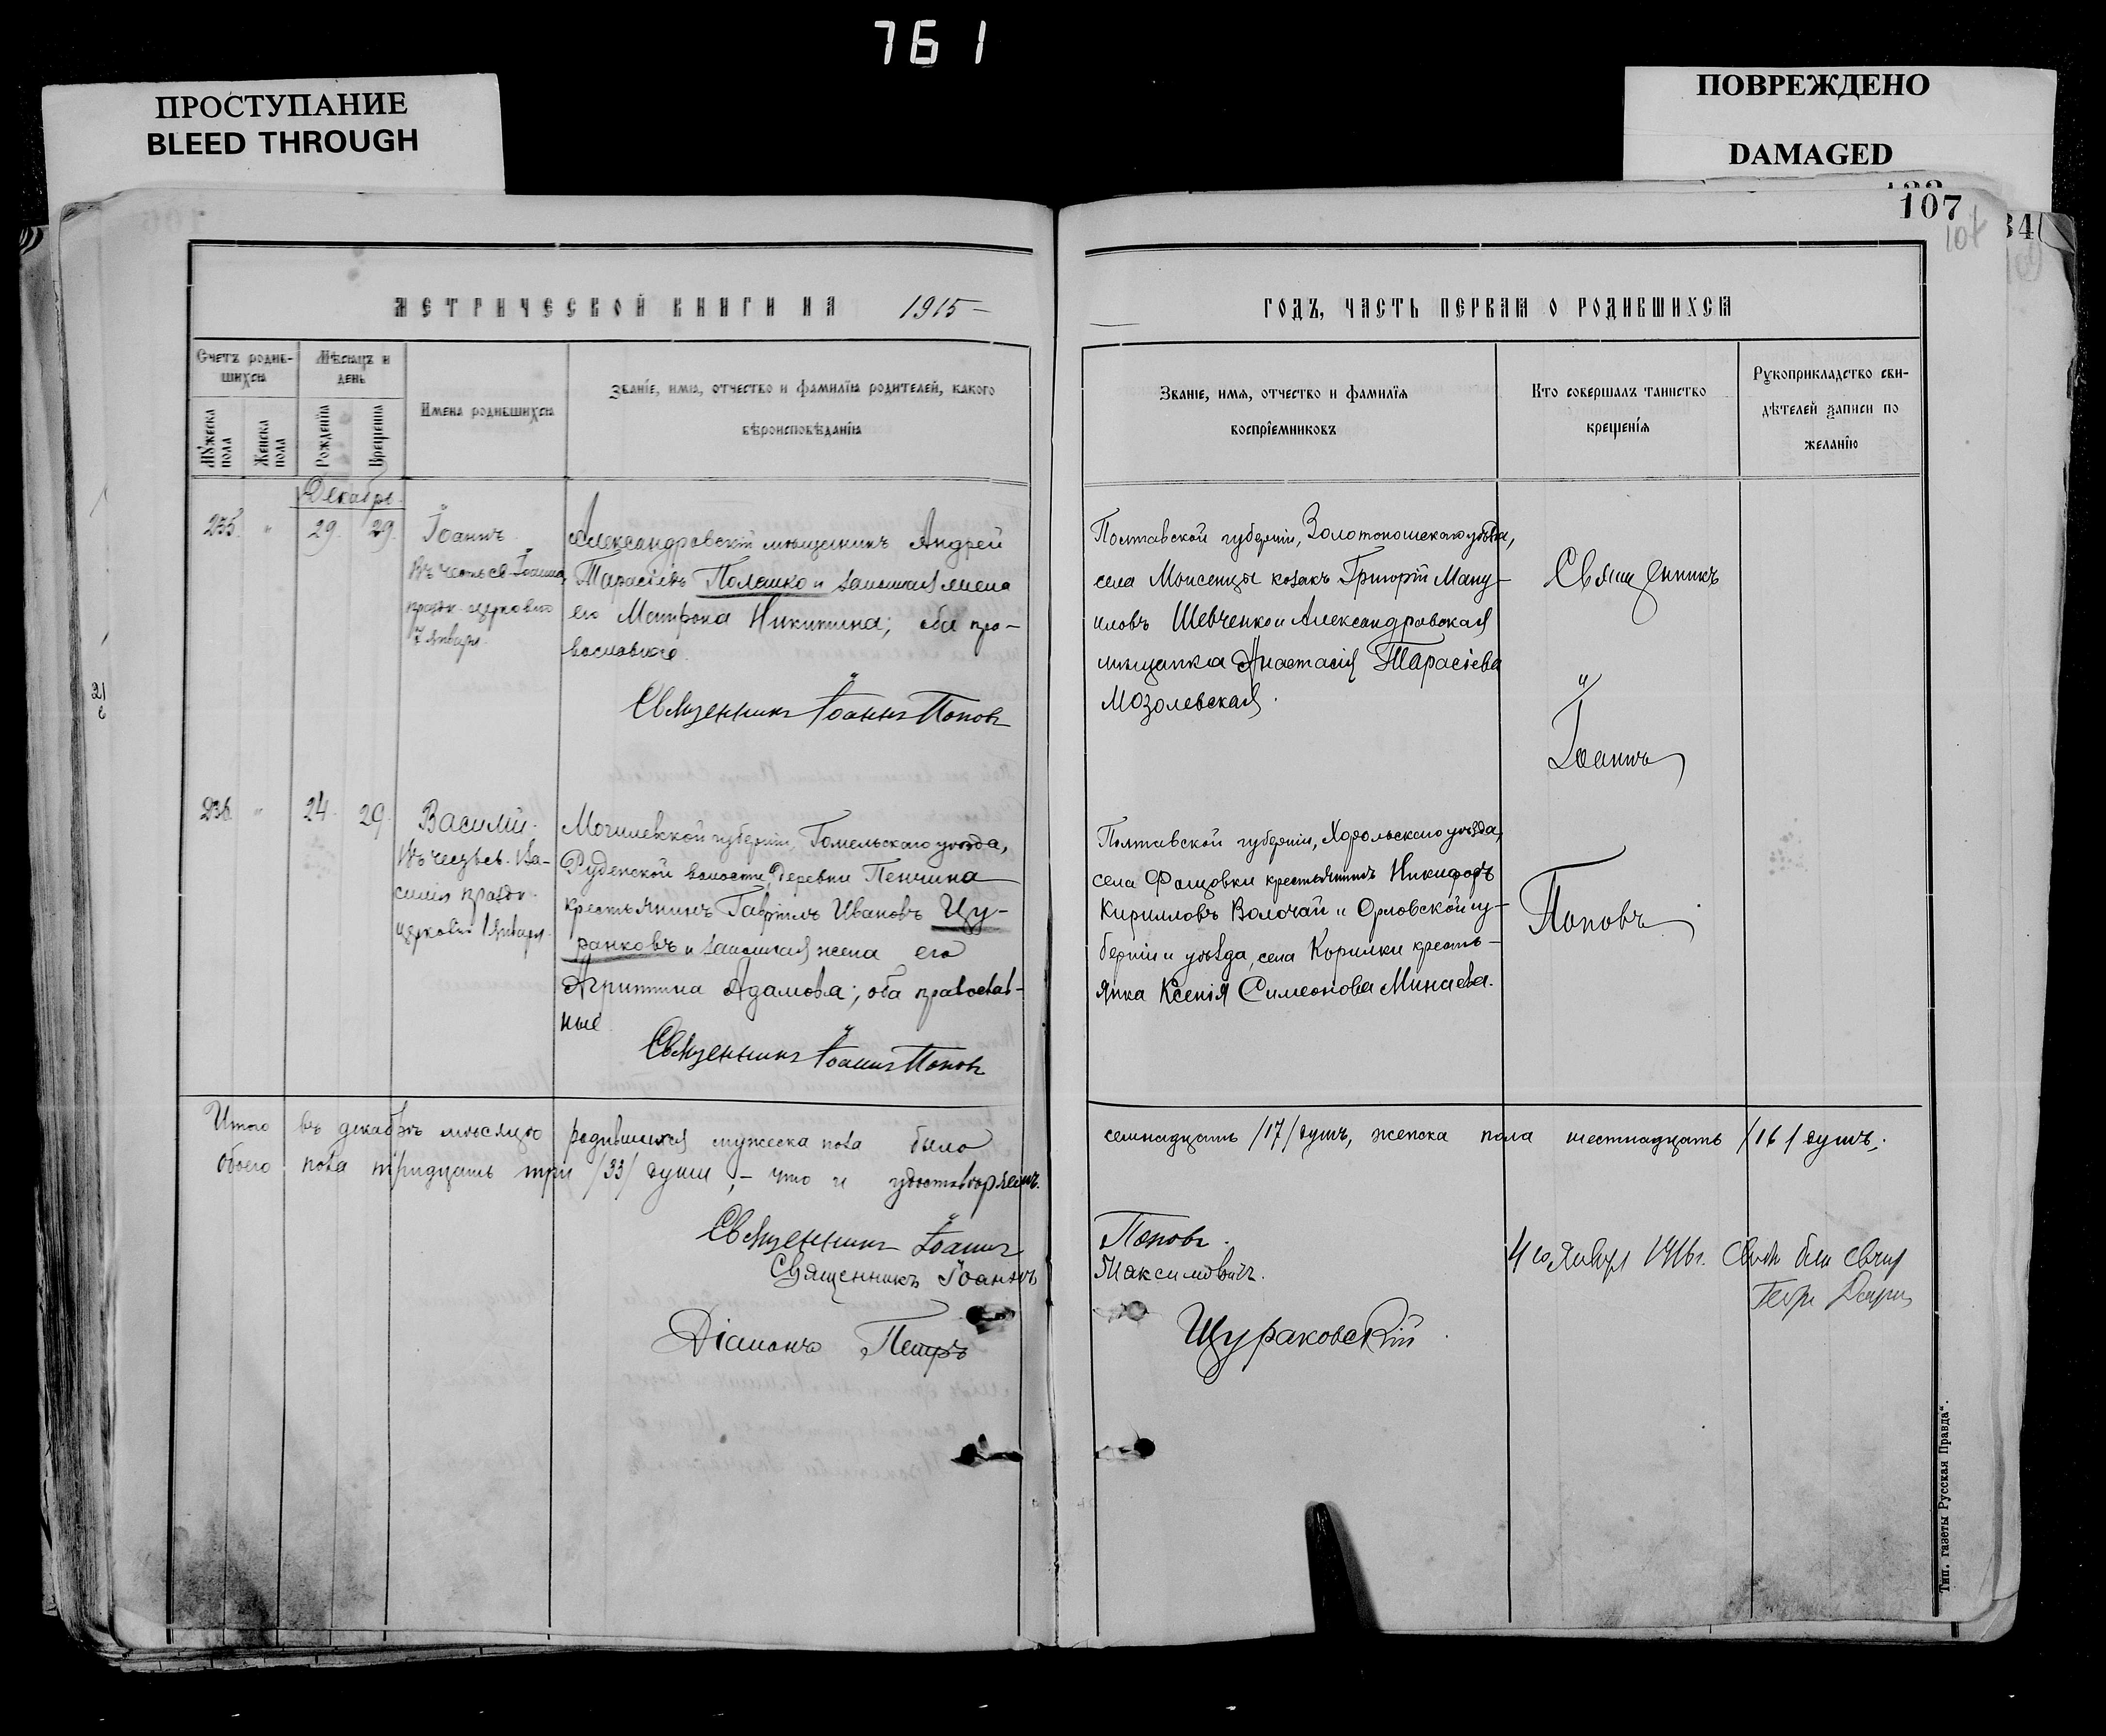 761
ПРОСТУПАНИЕ
BLEED THROUGH
ПОВРЕЖДЕНО
DAMAGED
107
107
МЕТРИЧЕСКОЙ КНИГИ НА 1915
ГОДЪ, ЧАСТЬ ПЕРВАЯ О РОДИВШИХСЯ
Счетъ родив-
шихся
Мѣсяцъ и
день
Мꙋжеска
пола
Женска
пола
Рожденїя
Крещенїя
Имена родившихся
Званїе, имя, отчество и фамилїя родителей, какого
вѣроисповѣданїя
Званїе, имя, отчество и фамилїя
воспрїемниковъ
Кто совершалъ таинство
крещенїя
Рꙋкоприкладство сви-
дѣтелей записи по
желанїю
Декабрь
235. " 29. 29.
Іоаннъ
Въ честь св. Іоанна,
праздн. церковію
7 января.
Александровскій мѣщанинъ Андрей
Тарасіевъ Полашко и законная жена
его Матрона Никитина; оба пра-
вославные.
Священникъ Іоаннъ Поповъ
Полтавской губерніи, Золотоношскаго уѣзда,
села Моисенцы козакъ Григорій Ману-
иловъ Шевченко и Александровская
мѣщанка Анастасія Тарасіева
Мозолевская.
Священникъ
Іоаннъ
Поповъ
236. " 24. 29.
Василій.
Въ честь св. Ва-
силія праздн.
церковію 1 января.
Могилевской губерніи, Гомельскаго уѣзда,
Руденской волости, деревни Пенчина
крестьянинъ Гавріилъ Ивановъ Цу-
ранковъ и законная жена его
Агриппина Адамова; оба православ-
ные.
Священникъ Іоаннъ Поповъ
Полтавской губерніи, Хорольскаго уѣзда,
села Фащовки крестьянинъ Никифоръ
Кирилловъ Волочай и Орловской гу-
берніи и уѣзда, села Корилки кресть-
янка Ксенія Симеонова Минаева.
Итого въ декабрѣ мѣсяцѣ родившихся мужеска пола было
семнадцать /17/ душъ, женска пола шестнадцать /16/ душъ;
обоего пола тридцать три /33/ души, - что и удостовѣряемъ.
Священникъ Іоаннъ Поповъ.
Священникъ Іоаннъ Максимовичъ.
Діаконъ Петръ Щураковскій
4 го Января 1916 г.
Тип. газеты „Русская Правда“.